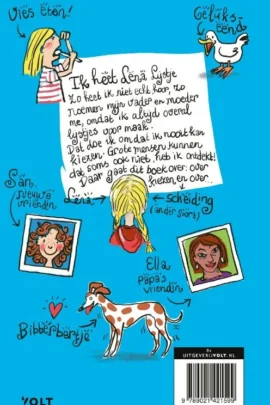 Vies eten!
Geluks-
eend
Ik heet Lena Lijstje
Zo heet ik niet echt hoor, zo
noemen mijn vader en moeder
me, omdat ik altijd overal
lijstjes voor maak.
Dat doe ik omdat ik nooit kan
kiezen. Grote mensen kunnen
dat soms ook niet, heb ik ontdekt!
Daar gaat dit boek over: over
kiezen en over
Lena
scheiding
(ander soort)
San,
nieuwe
vriendin
Ella
papa's
vriendin
Bibberbeertje
VOLT
UITGEVERIJVOLT.NL
9 789021 421599